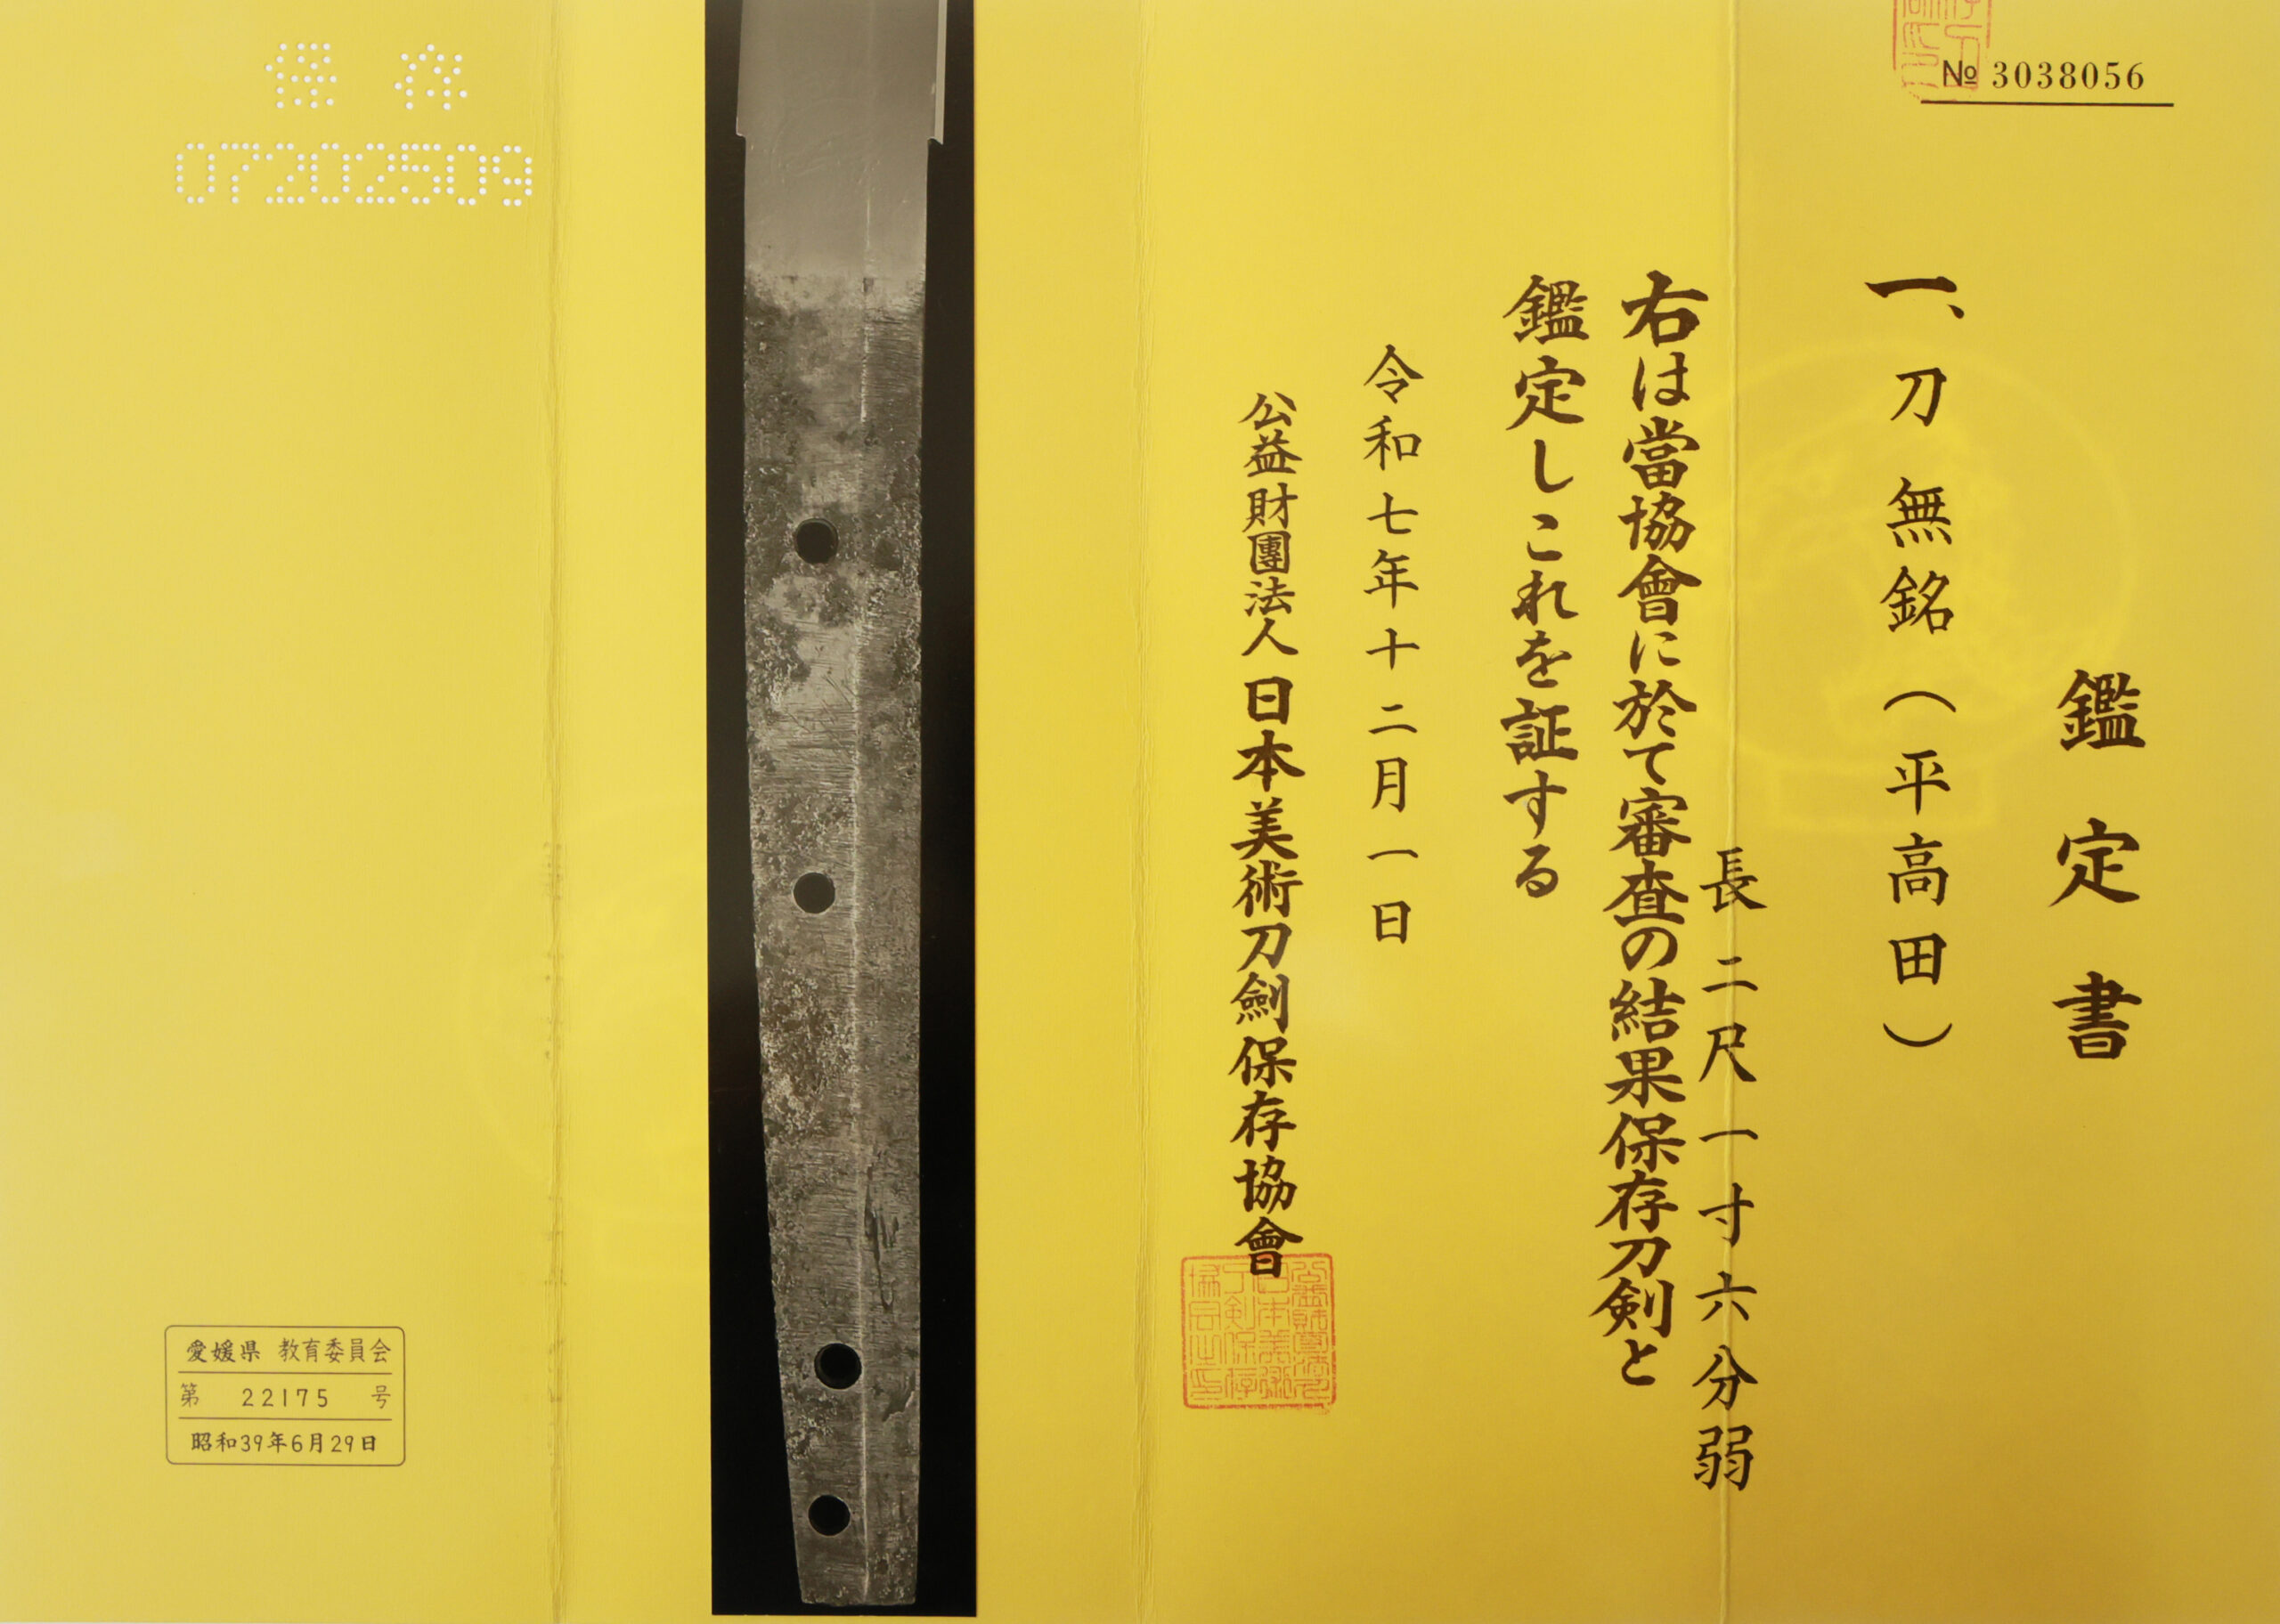 № 3038056
鑑定書
一、刀 無銘（平高田）
長二尺一寸六分弱
右は當協會に於て審査の結果保存刀剣と
鑑定しこれを証する
令和七年十二月一日
公益財團法人 日本美術刀劍保存協會
保存
07202509
愛媛県 教育委員会
第 22175 号
昭和39年6月29日